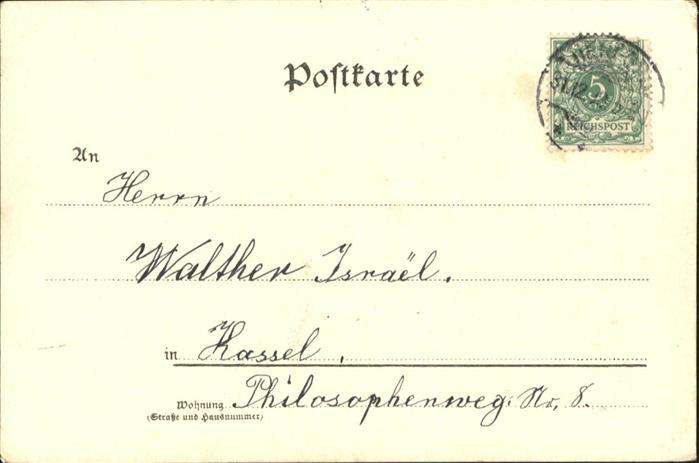 Postkarte
5
REICHSPOST
An
Herrn
Walther Israël.
in Kassel.
Wohnung Philosophenweg: Nr. 8.
(Straße und Hausnummer)